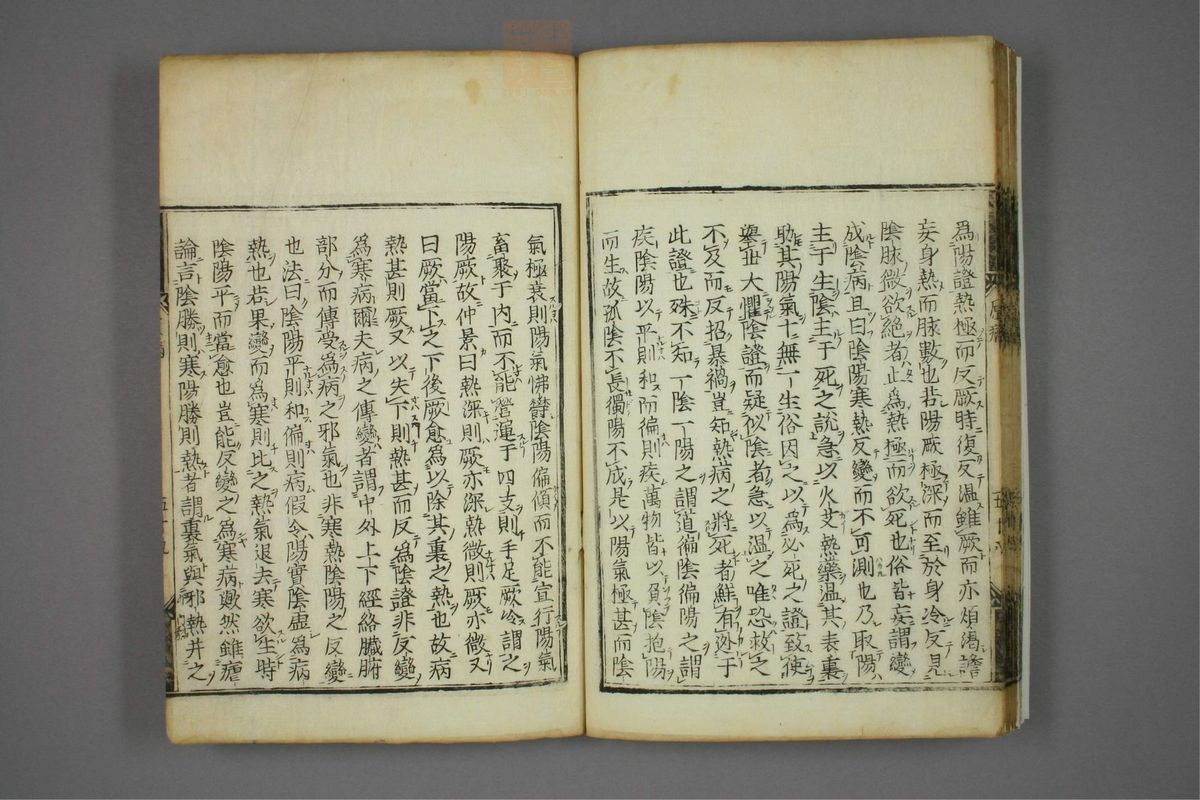 為陽證熱極而反厥時復反溫雖厥而亦煩渴譫
妄身熱而脉數也若陽厥極深而至於身冷反見
陰脉微欲絕者止為熱極而欲死也俗皆妄謂變
成陰病且曰陰陽寒熱反變而不可測也乃取陽
主于生陰主于死之說急以火艾熱藥溫其表裏
助其陽氣十無一生俗因之以為必死之證致使
舉世大懼陰證而疑似陰者急以溫之唯恐救之
不及而反招暴禍豈知熱病之將死者鮮有逃于
此證也殊不知一陰一陽之謂道偏陰偏陽之謂
疾陰陽以平則和而偏則疾萬物皆以負陰抱陽
而生故孤陰不長獨陽不成是以陽氣極甚而陰
氣極衰則陽氣怫鬱陰陽偏傾而不能宣行陽氣
畜聚于内而不能營運于四支則手足厥冷謂之
陽厥故仲景曰熱深則厥亦深熱微則厥亦微又
曰厥當下之下後厥愈為以除其裏之熱也故病
熱甚則厥又以失下則熱甚而反為陰證非反變
為寒病爾夫病之傳變者謂中外上下經絡臟腑
部分而傳受為病之邪氣也非寒熱陰陽之反變
也法曰陰陽平則和偏則病假令陽實陰虛為病
熱也若果變而為寒則比之熱氣退去寒欲生時
陰陽平而當愈也豈能反變之為寒病歟然雖瘧
論言陰勝則寒陽勝則熱者謂裏氣與邪熱并之